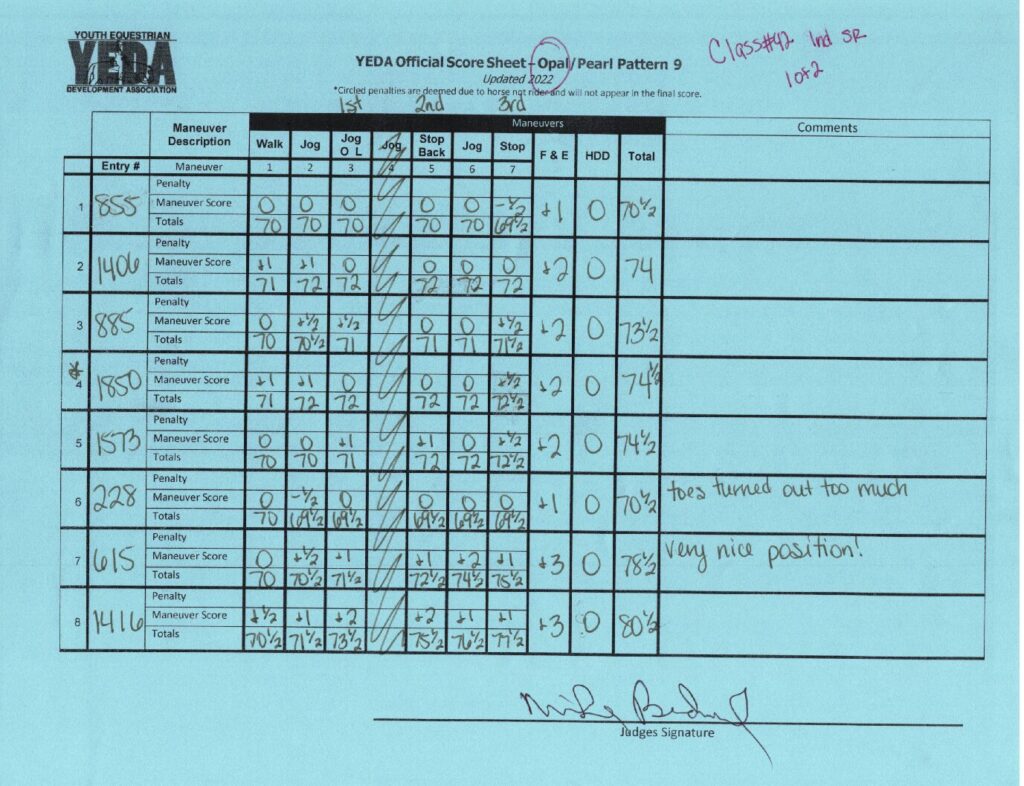 YOUTH EQUESTRIAN
YEDA
DEVELOPMENT ASSOCIATION
YEDA Official Score Sheet - Opal/Pearl Pattern 9
Updated 2022
*Circled penalties are deemed due to horse not rider and will not appear in the final score.
Class#42 Ind SR
1 of 2
1st 2nd 3rd
Maneuvers
Maneuver Description Walk Jog Jog O L Jog Stop Back Jog Stop F & E HDD Total Comments
Entry # Maneuver 1 2 3 4 5 6 7
Penalty
1 855 Maneuver Score 0 0 0 0 0 -½ +1 0 70½
Totals 70 70 70 70 70 69½
Penalty
2 1406 Maneuver Score +1 +1 0 0 0 0 +2 0 74
Totals 71 72 72 72 72 72
Penalty
3 885 Maneuver Score 0 +½ +½ 0 0 +½ +2 0 73½
Totals 70 70½ 71 71 71 71½
Penalty
* 4 1850 Maneuver Score +1 +1 0 0 0 +½ +2 0 74½
Totals 71 72 72 72 72 72½
Penalty
5 1573 Maneuver Score 0 0 +1 +1 0 +½ +2 0 74½
Totals 70 70 71 72 72 72½
Penalty
6 228 Maneuver Score 0 -½ 0 0 0 0 +1 0 70½ toes turned out too much
Totals 70 69½ 69½ 69½ 69½ 69½
Penalty
7 615 Maneuver Score 0 +½ +1 +1 +2 +1 +3 0 78½ very nice position!
Totals 70 70½ 71½ 72½ 74½ 75½
Penalty
8 1416 Maneuver Score +½ +1 +2 +2 +1 +1 +3 0 80½
Totals 70½ 71½ 73½ 75½ 76½ 77½
Judges Signature